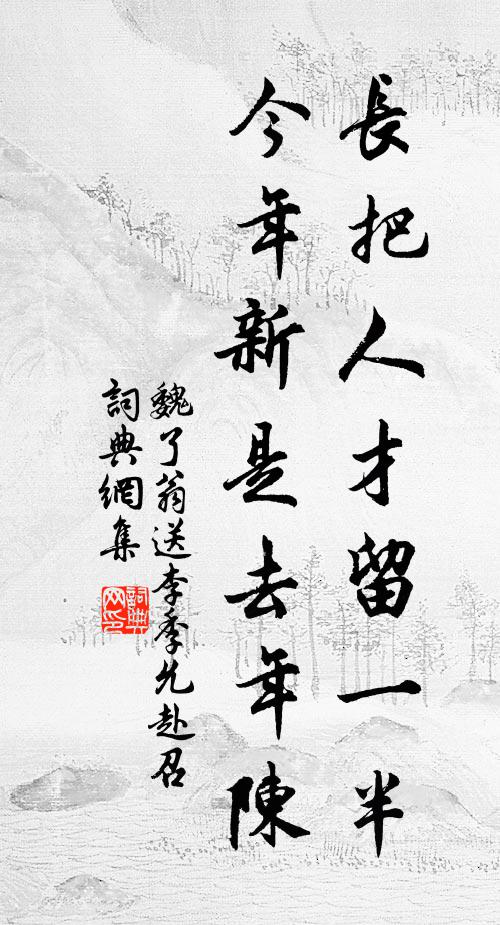 長把人才留一半
今年新是去年陳
魏了翁送李季允赴召
詞典網集
詞典
网印